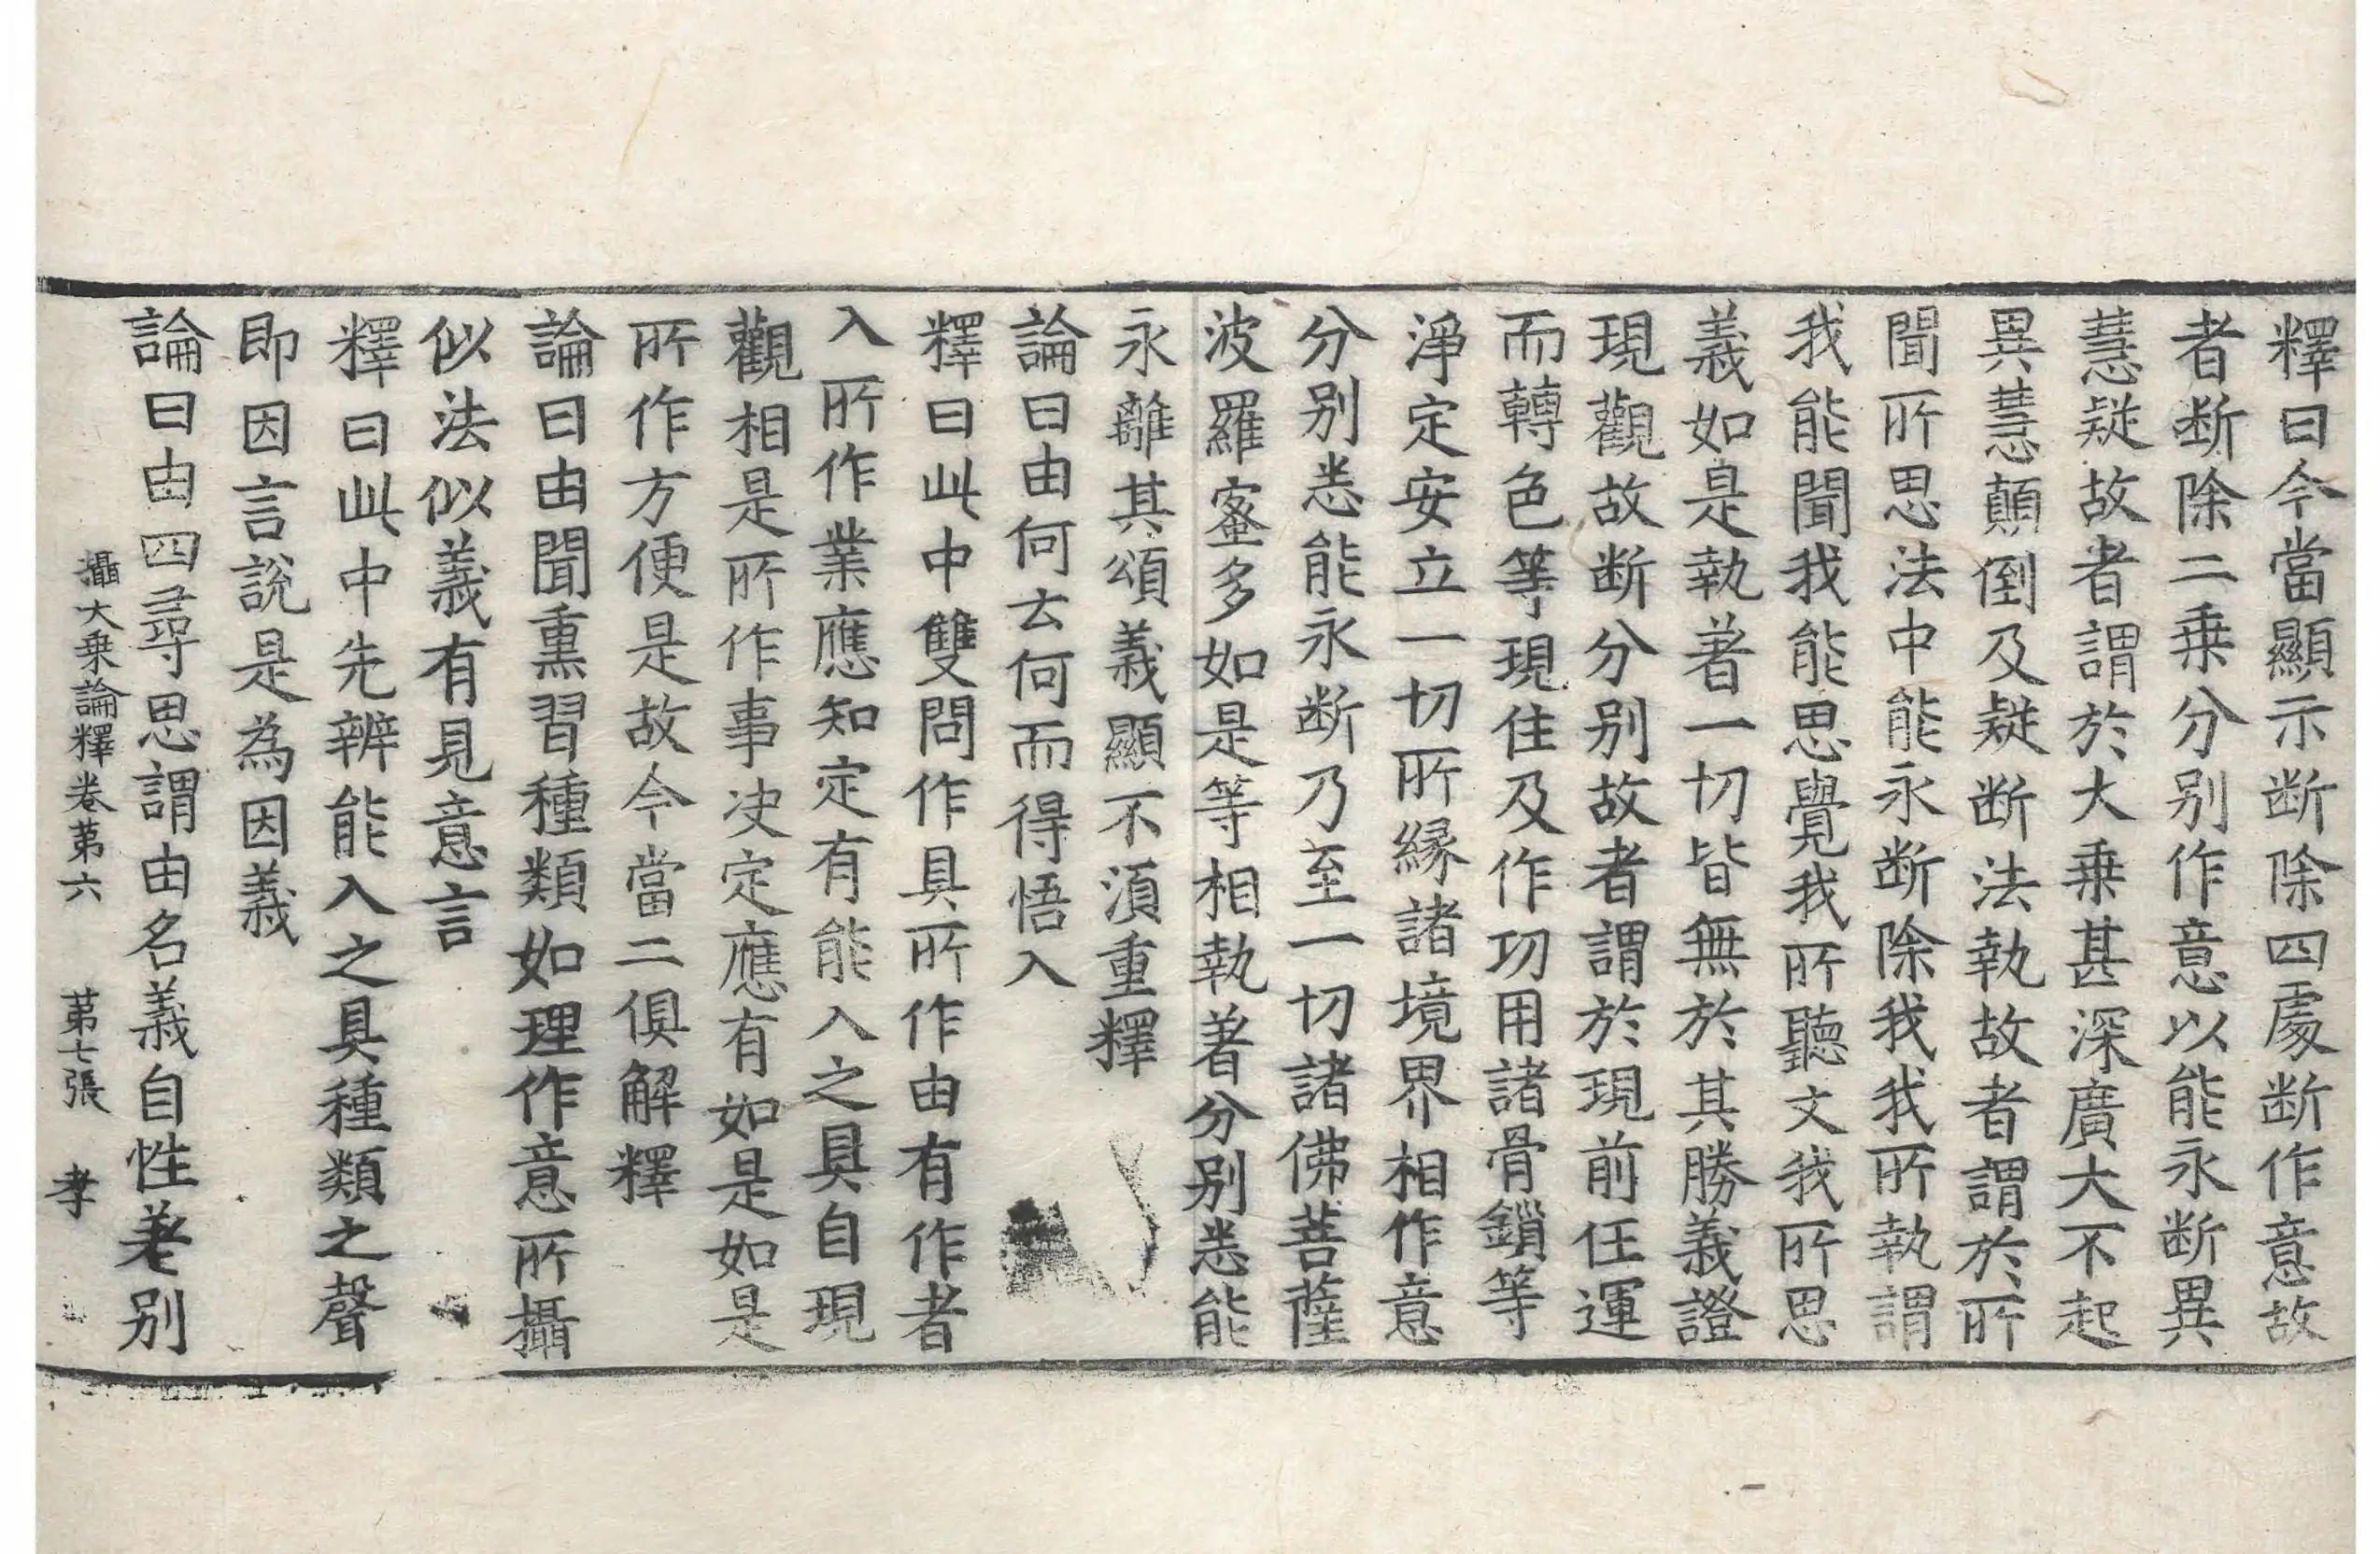 釋曰今當顯示断除四處断作意故
者断除二乗分别作意以能永断異
慧疑故者謂於大乗甚深廣大不起
異慧顛倒及疑断法執故者謂於所
聞所思法中能永断除我我所執謂
我能聞我能思覺我所聽文我所思
義如是執著一切皆無於其勝義證
現觀故断分别故者謂於現前任運
而轉色等現住及作功用諸骨鎖等
淨定安立一切所緣諸境界相作意
分别悉能永断乃至一切諸佛菩薩
波羅蜜多如是等相執著分别悉能
永離其頌義顯不湏重釋
論曰由何去何而得悟入
釋曰此中雙問作具所作由有作者
入所作業應知定有能入之具自現
觀相是所作事决定應有如是如是
所作方便是故今當二俱解釋
論曰由聞熏習種類如理作意所攝
似法似義有見意言
釋曰此中先辨能入之具種類之聲
即因言說是為因義
論曰由四尋思謂由名義自性差别
攝大乗論釋卷第六 第七張 孝